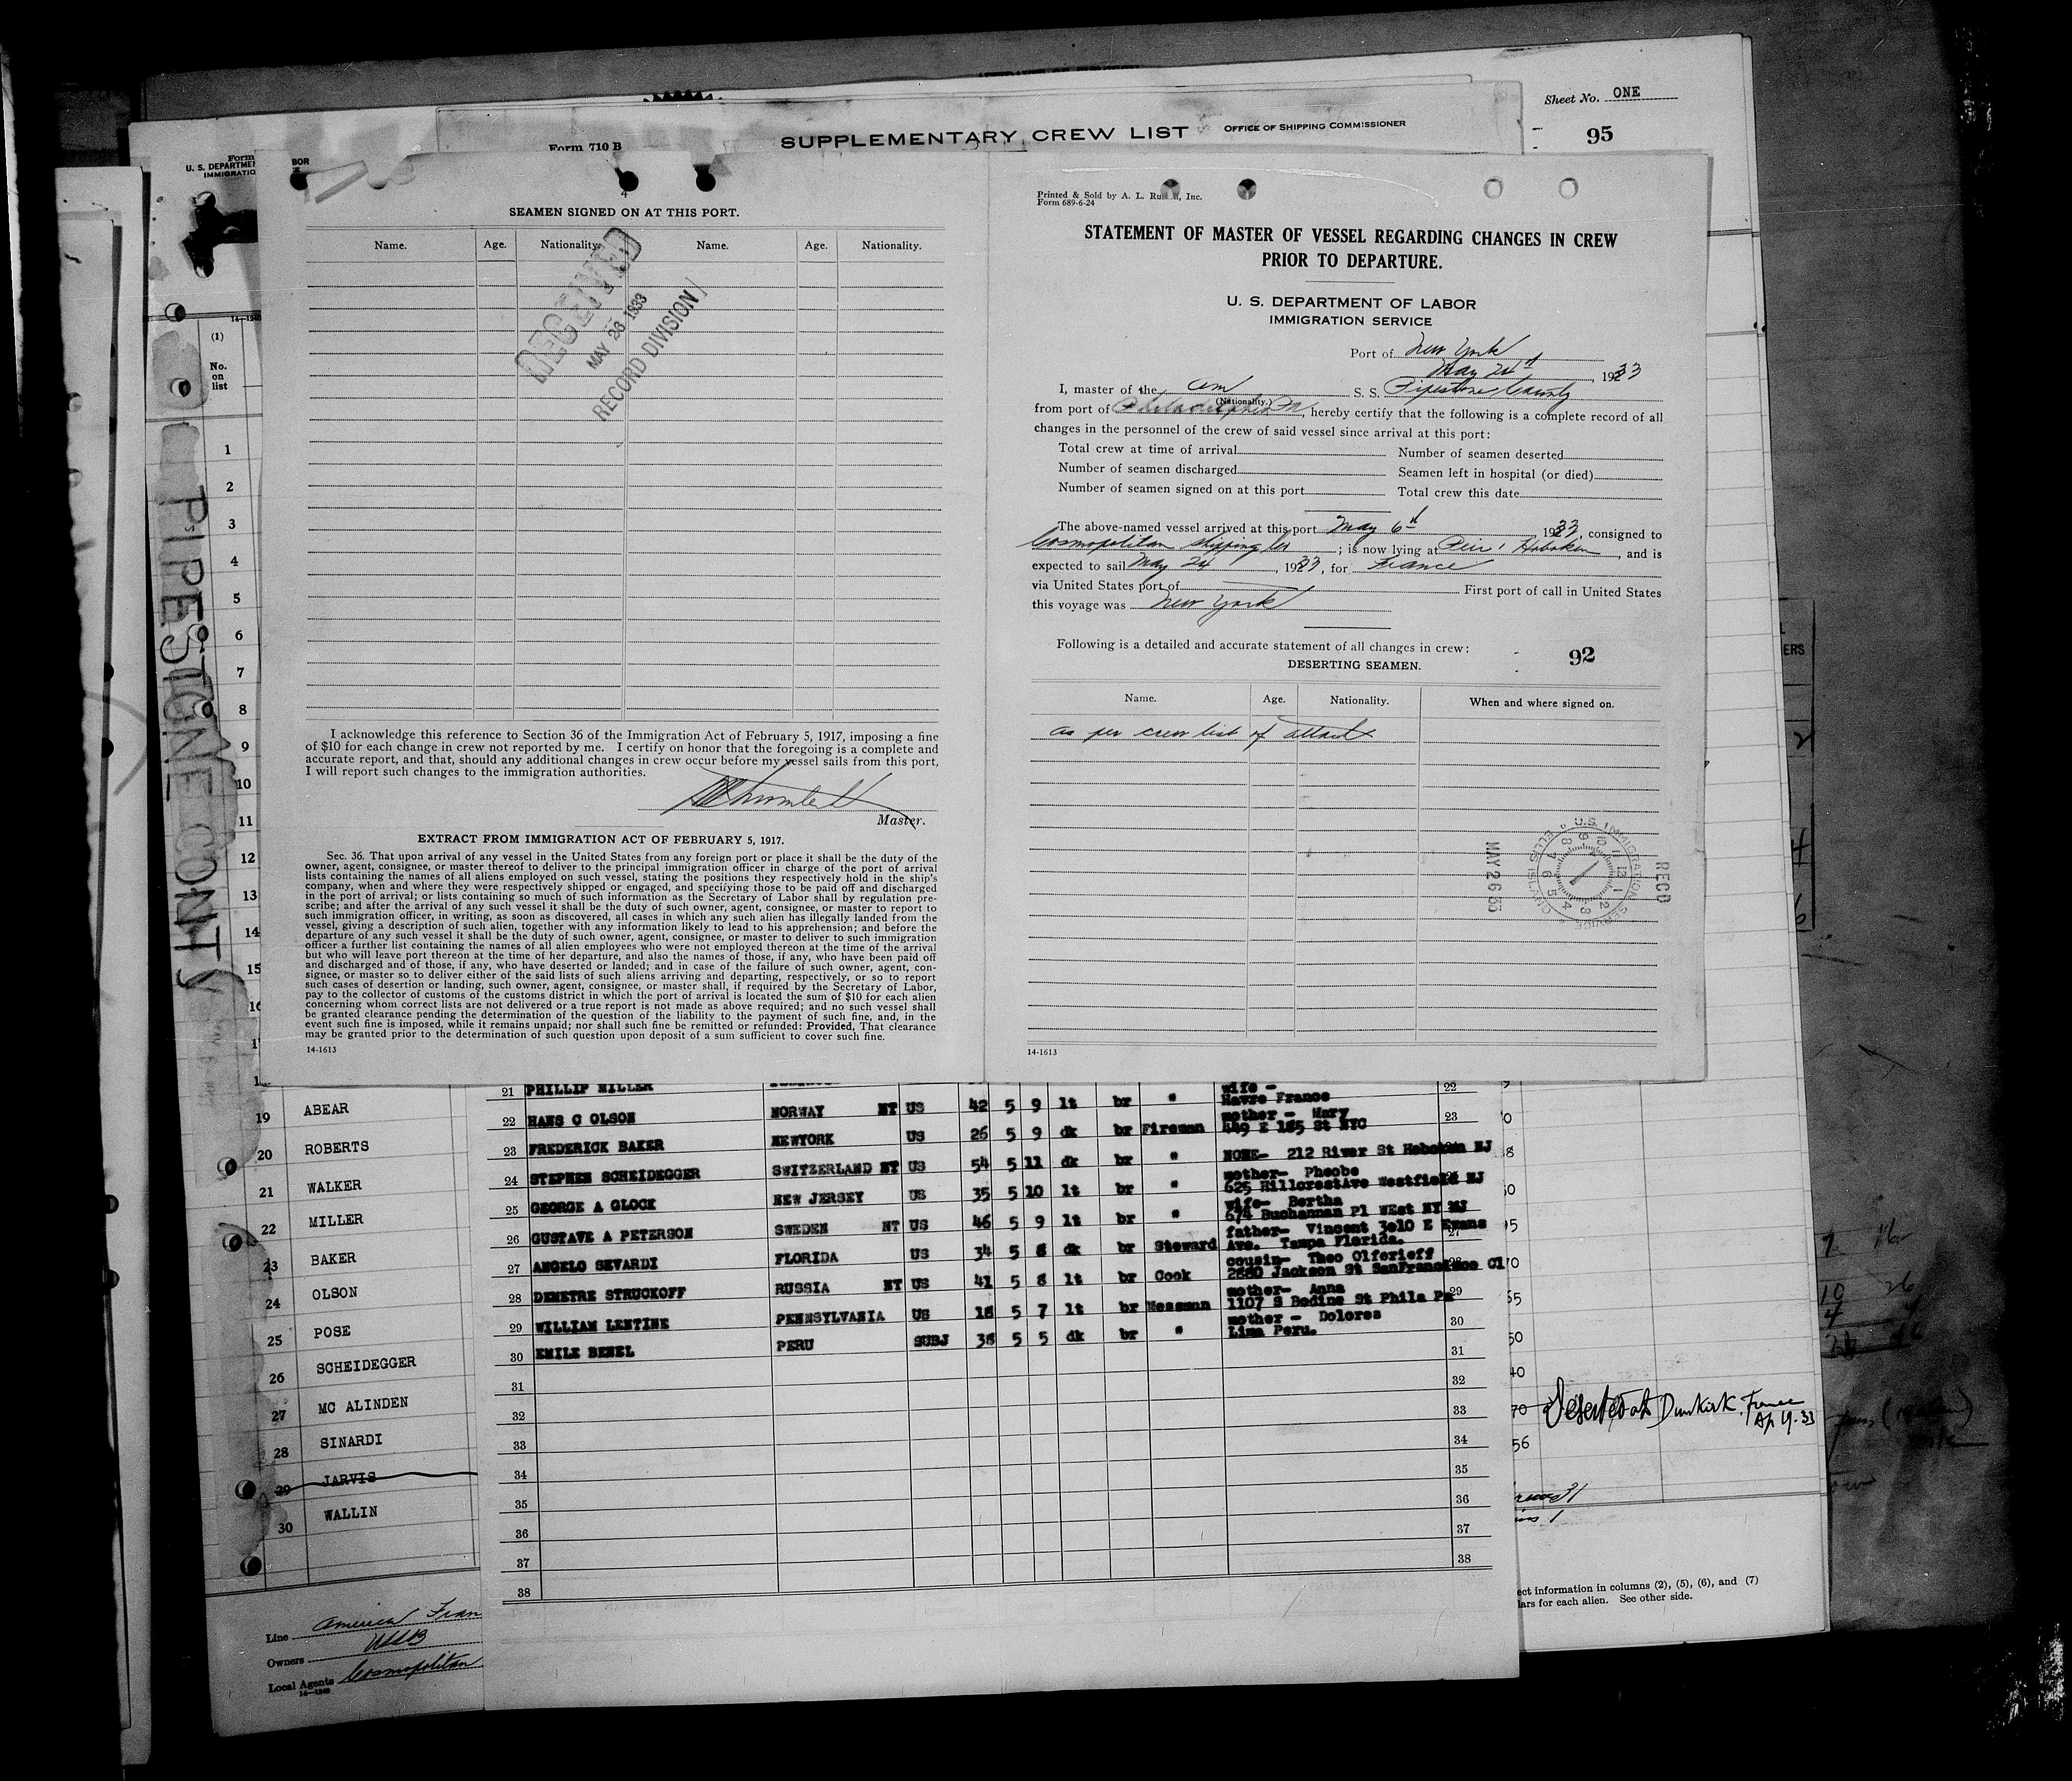 Sheet No. ONE
95
SUPPLEMENTARY CREW LIST OFFICE OF SHIPPING COMMISSIONER
Form 710 B
Form
U. S. DEPARTMENT
IMMIGRATIO
BOR
PIPESTONE CONTY
(1)
No.
on
list
1
2
3
4
5
6
7
8
9
10
11
12
13
14
15
4
SEAMEN SIGNED ON AT THIS PORT.
Name. Age. Nationality. Name. Age. Nationality.
RECEIVED
MAY 26 1933
RECORD DIVISION
I acknowledge this reference to Section 36 of the Immigration Act of February 5, 1917, imposing a fine
of $10 for each change in crew not reported by me. I certify on honor that the foregoing is a complete and
accurate report, and that, should any additional changes in crew occur before my vessel sails from this port,
I will report such changes to the immigration authorities.
Master.
EXTRACT FROM IMMIGRATION ACT OF FEBRUARY 5, 1917.
Sec. 36. That upon arrival of any vessel in the United States from any foreign port or place it shall be the duty of the
owner, agent, consignee, or master thereof to deliver to the principal immigration officer in charge of the port of arrival
lists containing the names of all aliens employed on such vessel, stating the positions they respectively hold in the ship's
company, when and where they were respectively shipped or engaged, and specifying those to be paid off and discharged
in the port of arrival; or lists containing so much of such information as the Secretary of Labor shall by regulation pre-
scribe; and after the arrival of any such vessel it shall be the duty of such owner, agent, consignee, or master to report to
such immigration officer, in writing, as soon as discovered, all cases in which any such alien has illegally landed from the
vessel, giving a description of such alien, together with any information likely to lead to his apprehension; and before the
departure of any such vessel it shall be the duty of such owner, agent, consignee, or master to deliver to such immigration
officer a further list containing the names of all alien employees who were not employed thereon at the time of the arrival
but who will leave port thereon at the time of her departure, and also the names of those, if any, who have been paid off
and discharged and of those, if any, who have deserted or landed; and in case of the failure of such owner, agent, con-
signee, or master so to deliver either of the said lists of such aliens arriving and departing, respectively, or so to report
such cases of desertion or landing, such owner, agent, consignee, or master shall, if required by the Secretary of Labor,
pay to the collector of customs of the customs district in which the port of arrival is located the sum of $10 for each alien
concerning whom correct lists are not delivered or a true report is not made as above required; and no such vessel shall
be granted clearance pending the determination of the question of the liability to the payment of such fine, and, in the
event such fine is imposed, while it remains unpaid; nor shall such fine be remitted or refunded: Provided, That clearance
may be granted prior to the determination of such question upon deposit of a sum sufficient to cover such fine.
14-1613
Printed & Sold by A. L. Inc.
Form 689-6-24
STATEMENT OF MASTER OF VESSEL REGARDING CHANGES IN CREW
PRIOR TO DEPARTURE.
U. S. DEPARTMENT OF LABOR
IMMIGRATION SERVICE
Port of New York
May 24th, 1933
I, master of the Am S. S. Pipestone County
(Nationality.)
from port of Philadelphia Pa, hereby certify that the following is a complete record of all
changes in the personnel of the crew of said vessel since arrival at this port:
Total crew at time of arrival Number of seamen deserted
Number of seamen discharged Seamen left in hospital (or died)
Number of seamen signed on at this port Total crew this date
The above-named vessel arrived at this port May 6th 1933, consigned to
Cosmopolitan Shipping Co; is now lying at Pier 1 Hoboken, and is
expected to sail May 24, 1933, for France
via United States port of First port of call in United States
this voyage was New York
Following is a detailed and accurate statement of all changes in crew:
DESERTING SEAMEN.
92
Name. Age. Nationality. When and where signed on.
as per crew list attach
U.S. IMMIGRATION SERVICE ELLIS ISLAND
REC'D
MAY 26 33
14-1613
19 ABEAR
20 ROBERTS
21 WALKER
22 MILLER
23 BAKER
24 OLSON
25 POSE
26 SCHEIDEGGER
27 MC ALINDEN
28 SINARDI
29 JARVIS
30 WALLIN
21 PHILLIP MILLER wife - 22
22 HANS C OLSON NORWAY NT US 42 5 9 lt br " Havre France
23 FREDERICK BAKER NEWYORK US 26 5 9 dk br Fireman mother - Mary 449 E 185 St NYC 23
24 STEPHEN SCHEIDEGGER SWITZERLAND NT US 54 5 11 dk br " NONE- 212 River St Hoboken NJ
25 GEORGE A GLOCK NEW JERSEY US 35 5 10 lt br " mother- Pheobe 625 HillcrestAve Westfield NJ
26 GUSTAVE A PETERSON SWEDEN NT US 46 5 9 lt br " wife- Bertha 674 Buchannan Pl WEst NY NJ
27 ANGELO SEVARDI FLORIDA US 34 5 8 dk br Steward father- Vincent 3010 E Evans Ave. Tampa Florida. 27
28 DEMETRE STRUCKOFF RUSSIA NT US 41 5 8 lt br Cook cousin- Theo Olferieff 2880 Jackson St SanFrancisco 28
29 WILLIAM LENTINE PENNSYLVANIA US 18 5 7 lt br Messman mother- Anna 1107 S Bodine St Phila Pa 29
30 EMILE BENEL PERU SUBJ 38 5 5 dk br " mother - Dolores Lima Peru. 30
31 31
32 32
33 33
34 34
35 35
36 36
37 37
38 38
Deserted at Dunkirk, France
Ap 19-33
Line America France
Owners USSB
Local Agents Cosmopolitan
14-1240
ect information in columns (2), (5), (6), and (7)
lars for each alien. See other side.